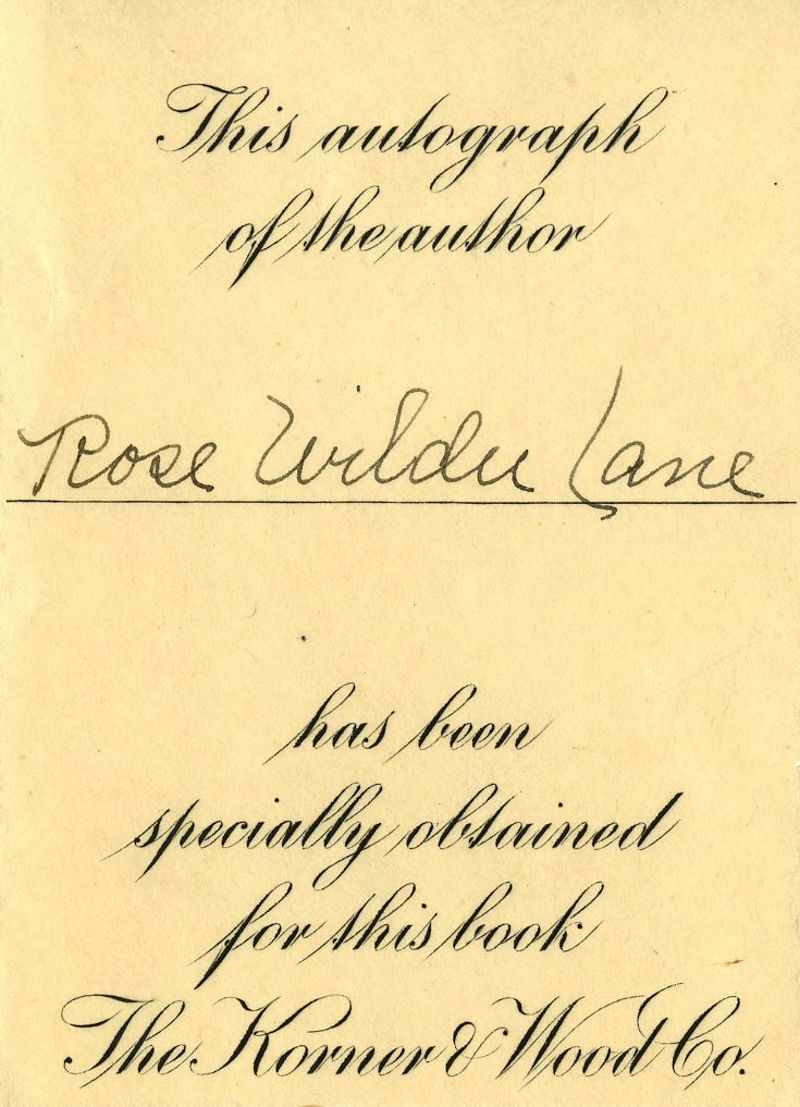 This autograph
of the author
Rose Wilder Lane
has been
specially obtained
for this book
The Korner & Wood Co.